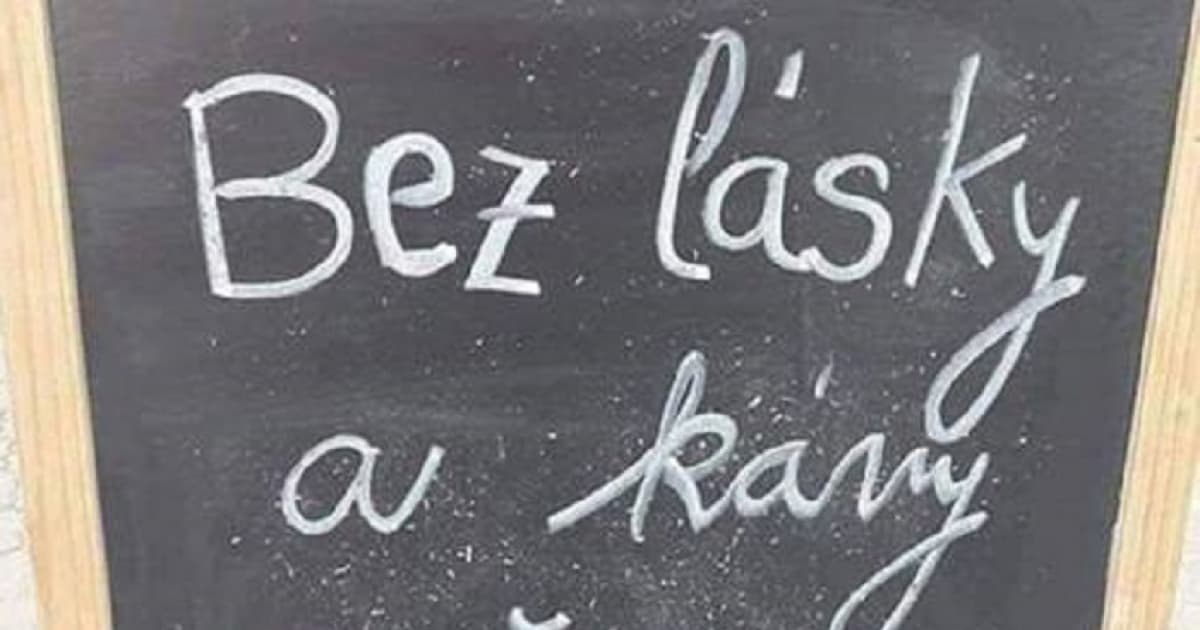 Bez lásky
a kávy